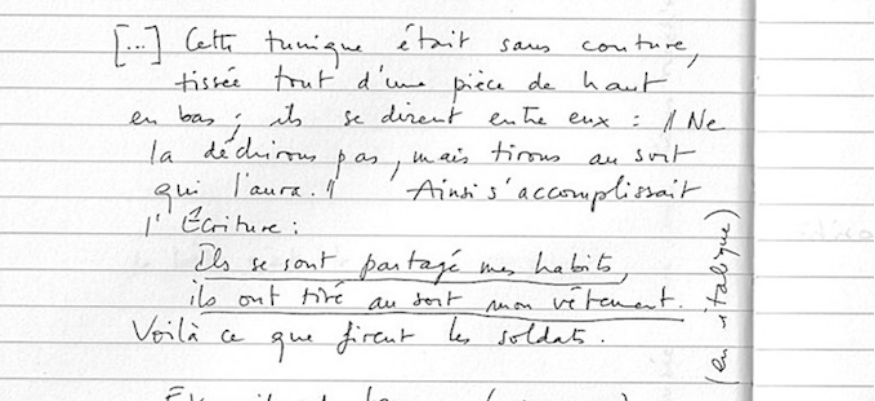 [...] Cette tunique était sans couture,
tissée tout d'une pièce de haut
en bas ; ils se dirent entre eux : "Ne
la déchirons pas, mais tirons au sort
qui l'aura." Ainsi s'accomplissait
l'Écriture :
Ils se sont partagé mes habits,
ils ont tiré au sort mon vêtement.
Voilà ce que firent les soldats.
(en italique)